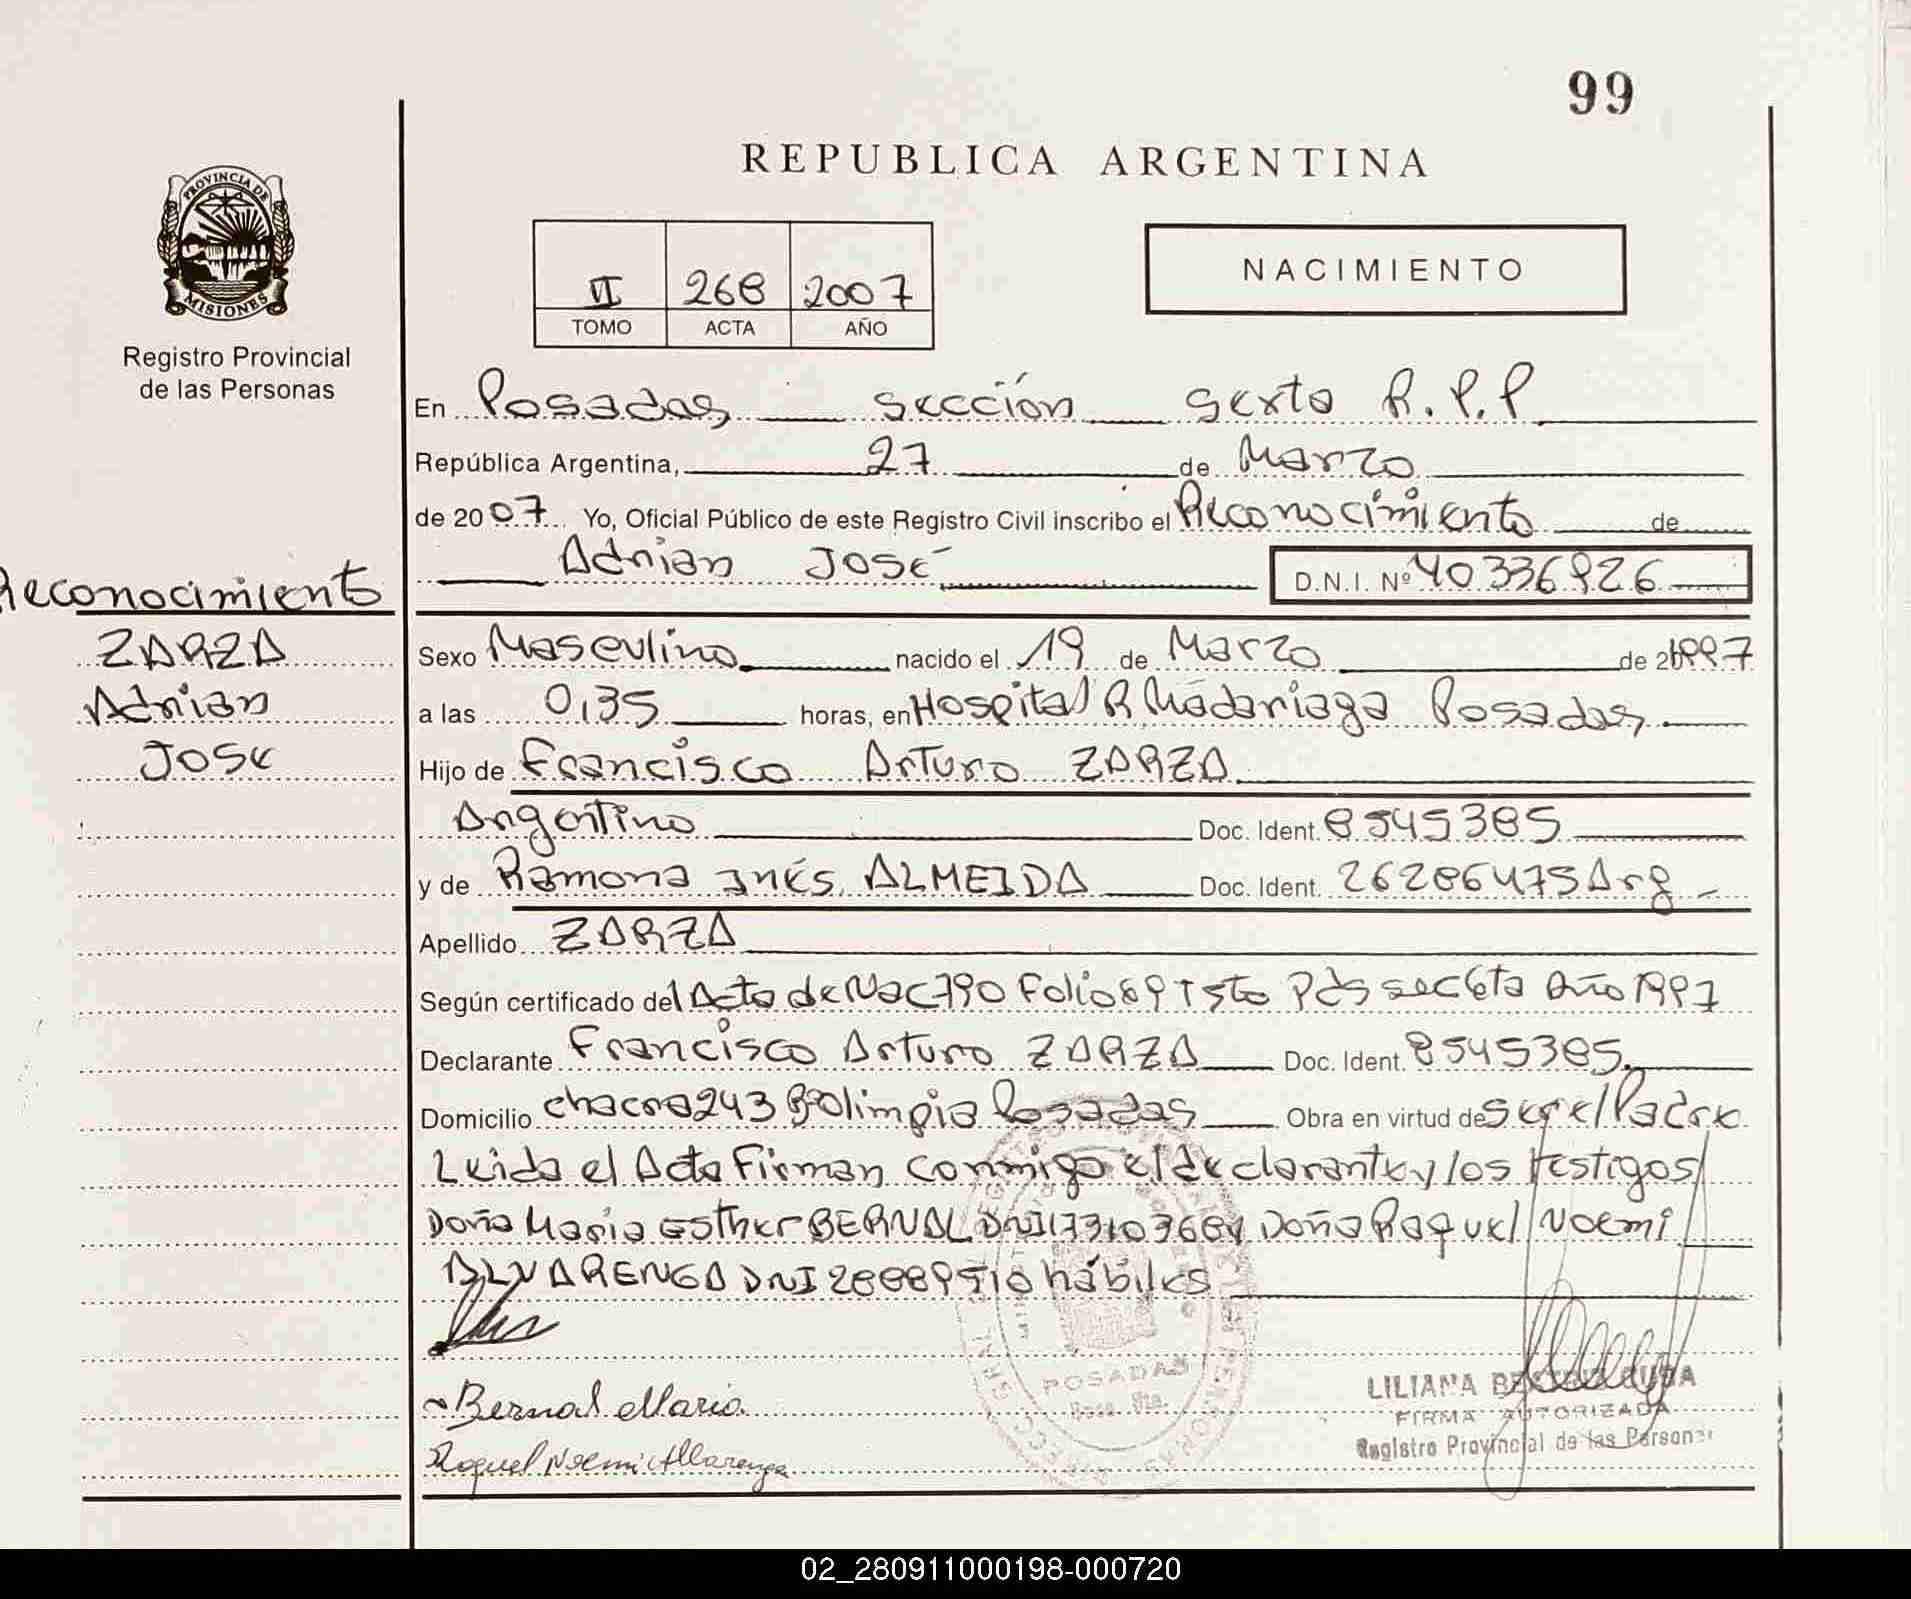 99
REPUBLICA ARGENTINA
PROVINCIA DE
MISIONES
Registro Provincial
de las Personas
VI 268 2007
TOMO ACTA AÑO
NACIMIENTO
En Posadas sección sexta R.P.P
República Argentina, 27 de Marzo
de 2007 Yo, Oficial Público de este Registro Civil inscribo el Reconocimiento de
Adrian José D.N.I. Nº 40336926
Reconocimiento
ZARZA
Adrian
José
Sexo Masculino nacido el 19 de Marzo de 1997
a las 0,35 horas, en Hospital R Madariaga Posadas
Hijo de Francisco Arturo ZARZA
Argentino Doc. Ident. 8545385
y de Ramona Inés ALMEIDA Doc. Ident. 26286475 Arg
Apellido ZARZA
Según certificado del Acta de Nac 790 Folio 89 T 5to Pdas sec 6ta Año 1997
Declarante Francisco Arturo ZARZA Doc. Ident. 8545385
Domicilio chacra 243 Bº Olimpia Posadas Obra en virtud de ser el Padre
Leida el Acta Firman conmigo el declarante y los testigos
Doña Maria Esther BERNAL DNI 17310368 Doña Raquel Noemi
ALVARENGA DNI 28889510 hábiles
POSADAS
Bernal Maria
Raquel Noemi Alvarenga
LILIANA
FIRMA AUTORIZADA
Registro Provincial de las Personas
02_280911000198-000720